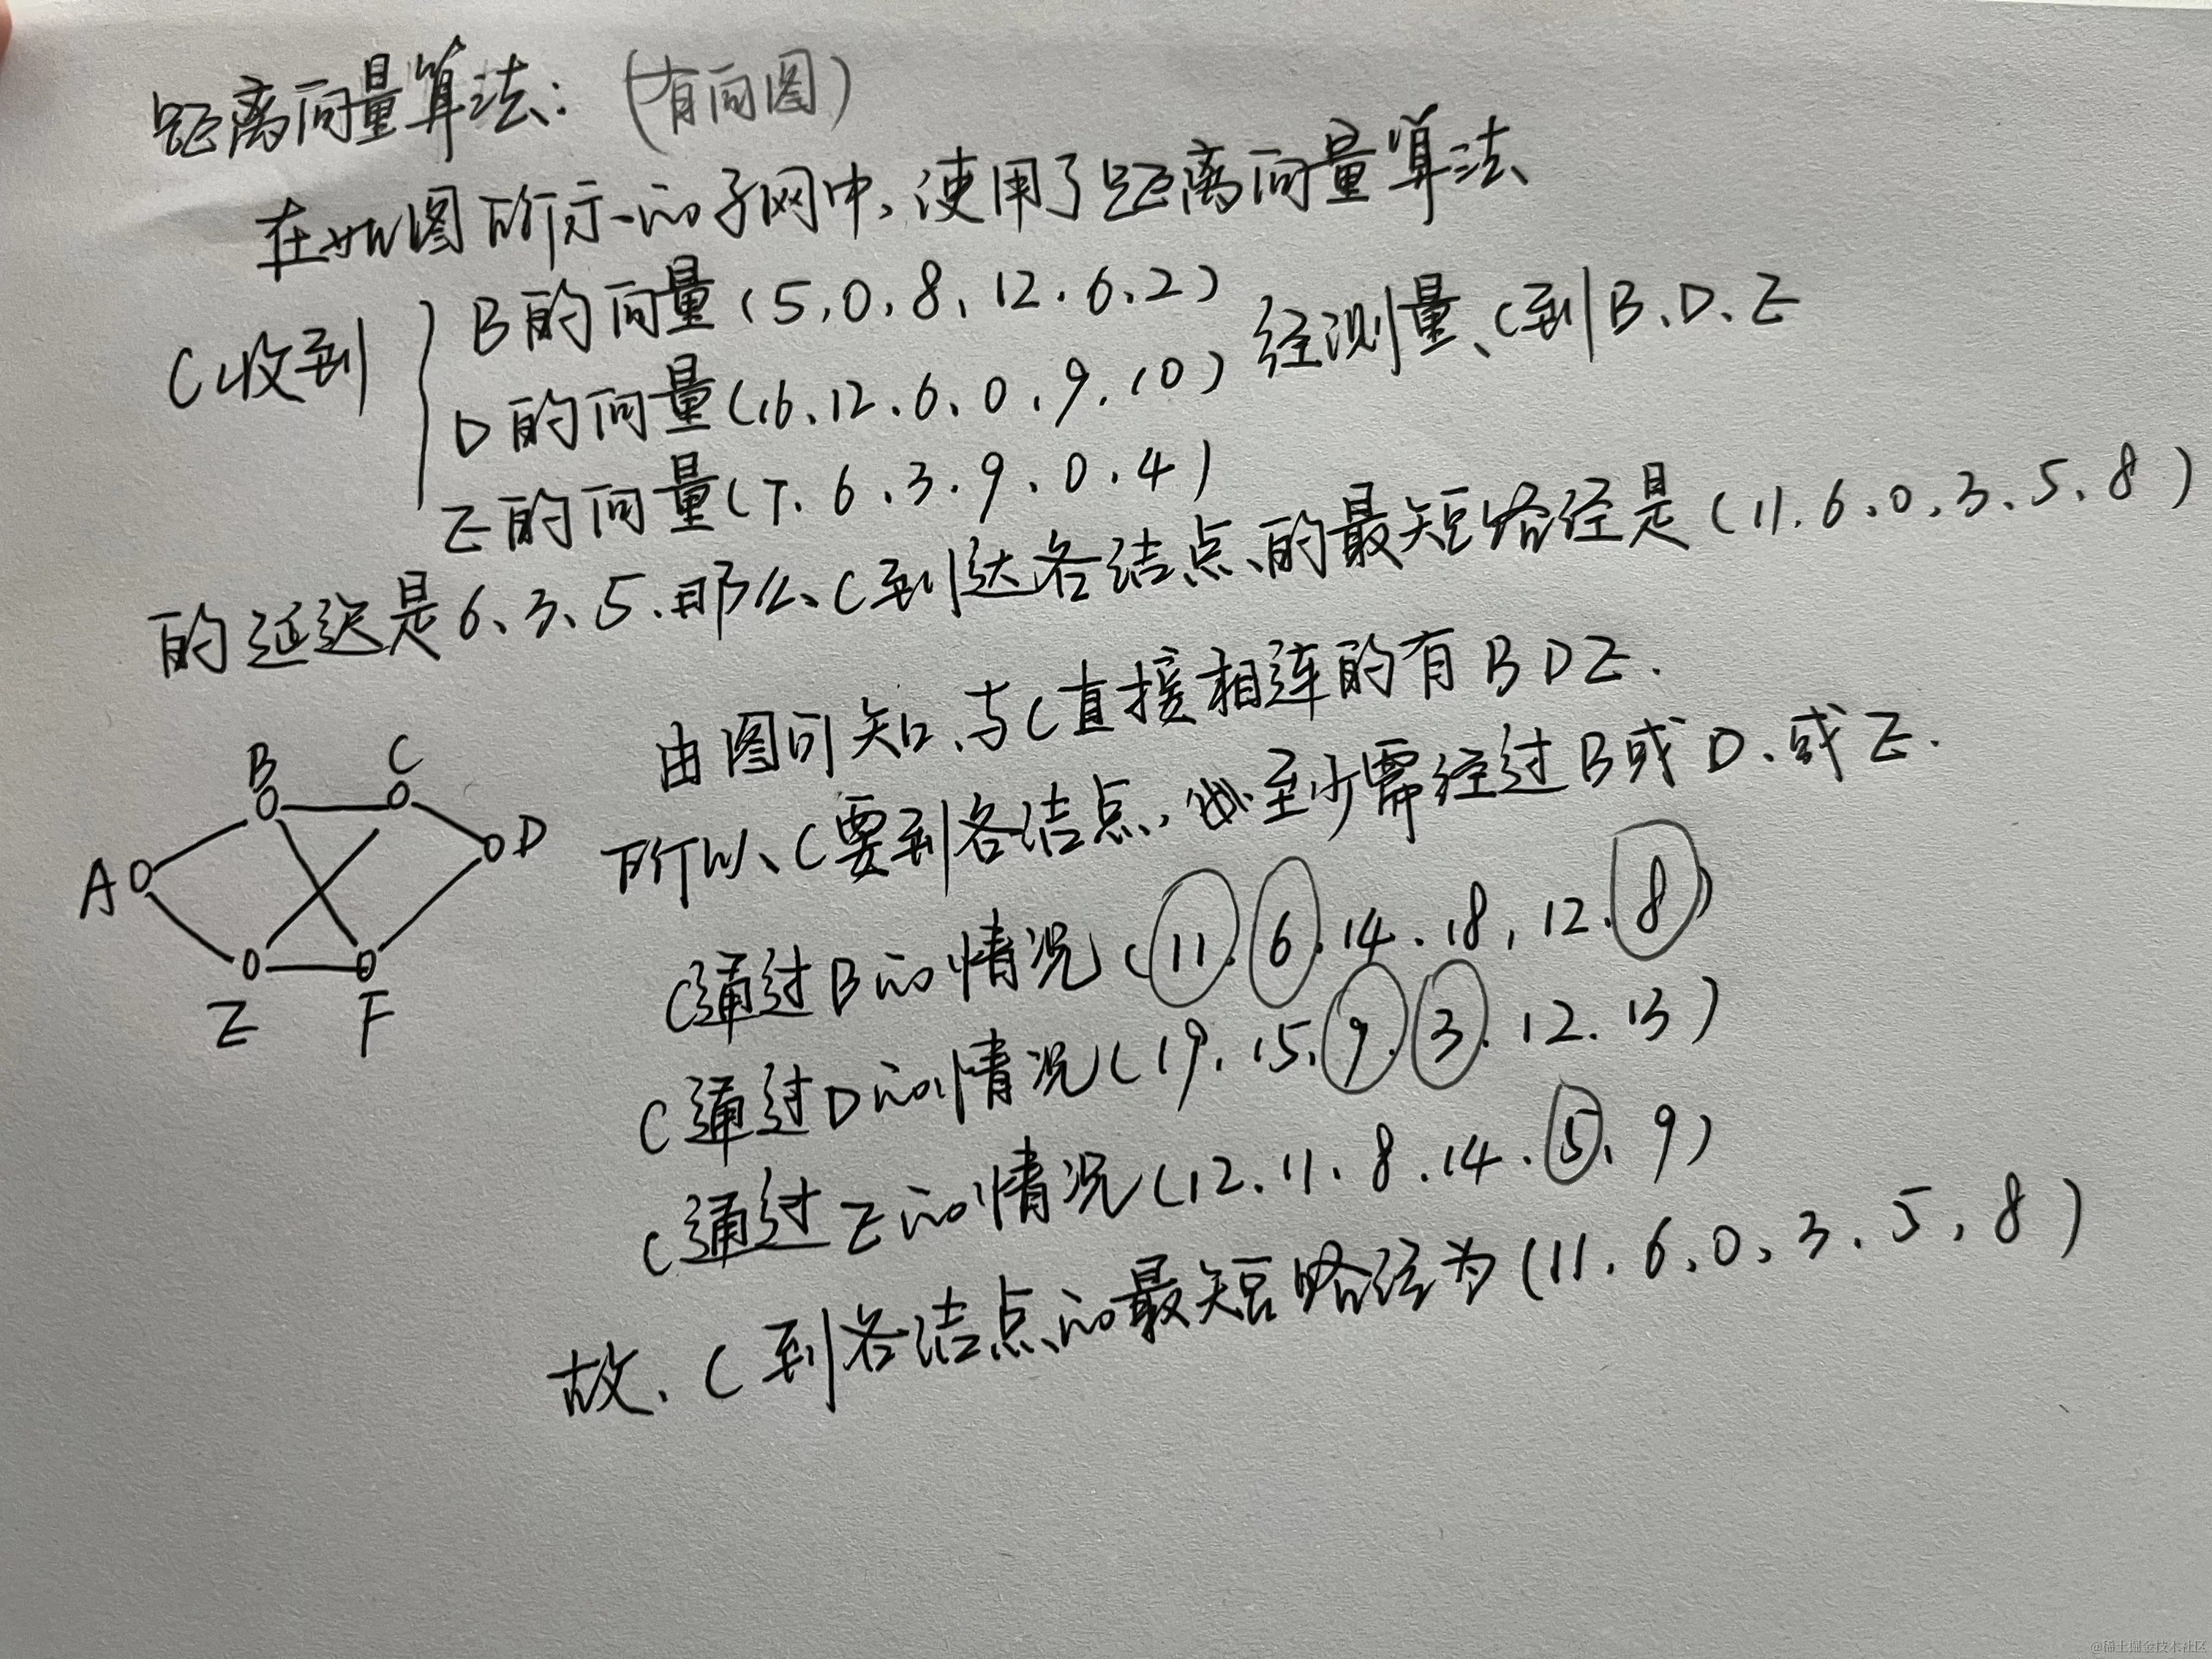 距离向量算法: (有向图)
在如图所示的子网中,使用了距离向量算法
C收到
B的向量(5,0,8,12.6.2)
D的向量(16.12.6.0.9.10)
经测量、C到B、D、E
E的向量(7.6.3.9.0.4)
的延迟是6、3、5.那么、C到达各结点的最短路径是(11.6.0.3.5.8)
由图可知、与C直接相连的有BDE.
所以、C要到各结点,至少需经过B或D、或E.
C通过B的情况(11.6.14.18,12.8)
C通过D的情况(19.15.9.3.12.13)
C通过E的情况(12.11.8.14.5.9)
故、C到各结点的最短路径为(11.6.0.3.5,8)
B
C
A
D
E
F
@稀土掘金技术社区